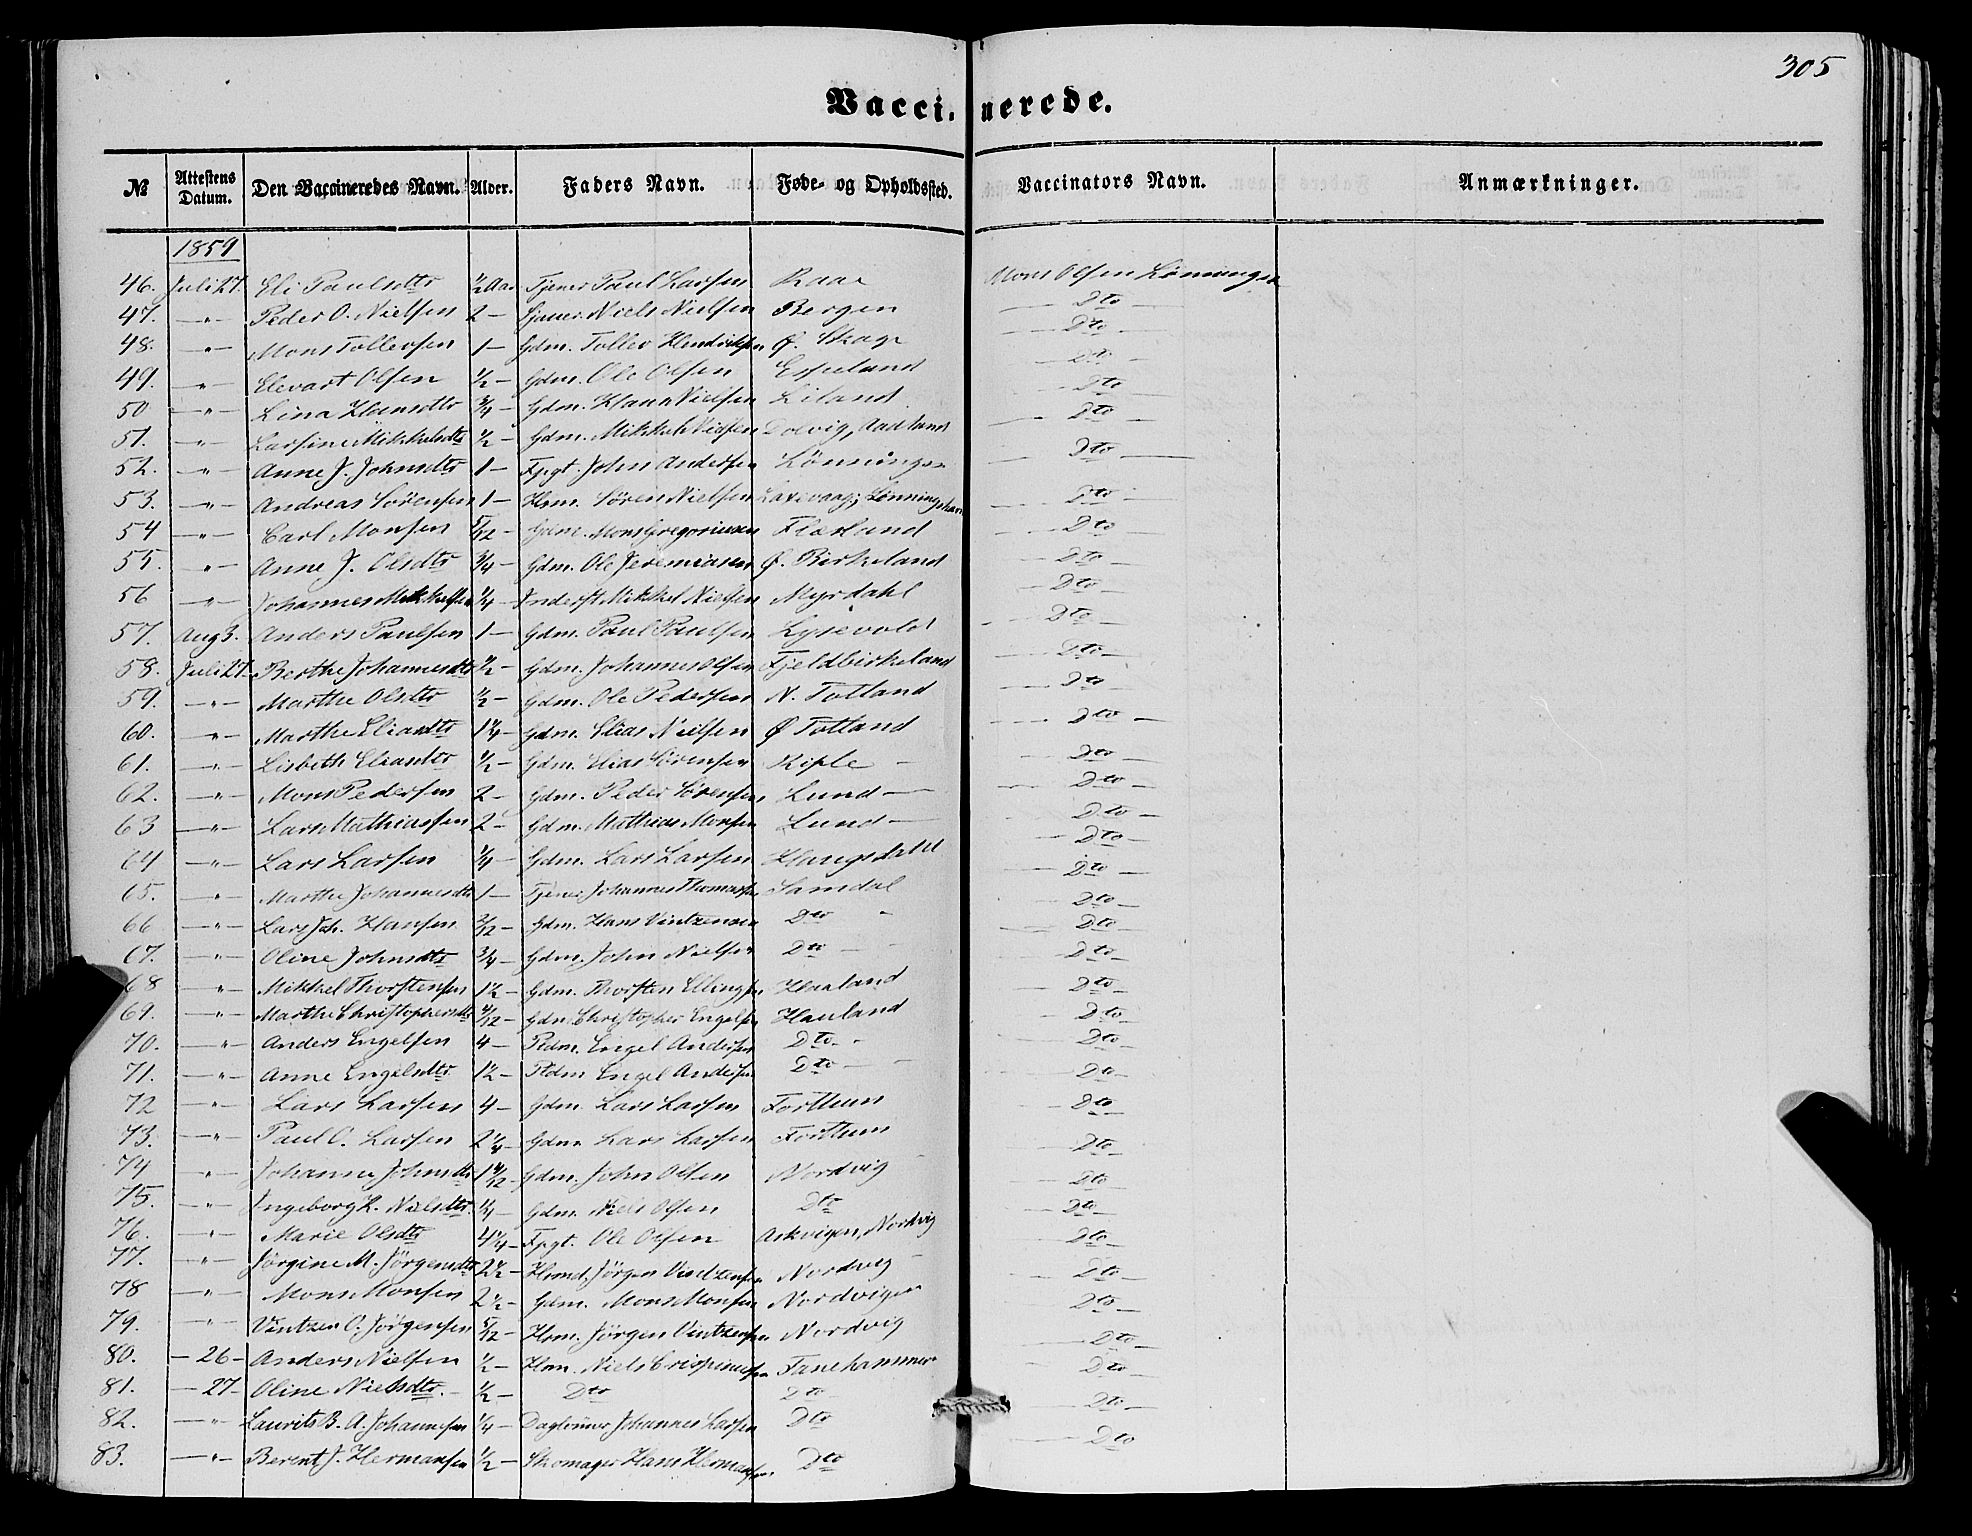 305
Vaccinerede.
№ Attestens Datum. Den Vaccineredes Navn. Alder. Faders Navn. Føde- og Opholdssted. Vaccinators Navn. Anmærkninger.
1859
46. Juli 27. Eli Paulsdtr ½ Aar Tjener Paul Larsen Raae Mons Olsen Lønningen
47. —"— Peder O. Nielsen 2 — Tjener Niels Nielsen Bergen — Dto —
48. —"— Mons Tollevsen 1 — Gdm. Tollev Hendriksen Ø. Skage — Dto —
49. —"— Elevart Olsen ½ — Gdm. Ole Olsen Espeland — Dto —
50 —"— Lina Hansdtr ¾ — Gdm. Hans Nielsen Liland — Dto —
51. —"— Larsine Mikkelsdtr ½ — Gdm. Mikkel Nielsen Dolvig, Aadland — Dto —
52. —"— Anne J. Johnsdtr 1 — Fpgt. John Andersen Lønningen — Dto —
53. —"— Andreas Sörensen 1 — Hsm. Sören Nielsen Laxevaag, Lønningshavn — Dto —
54 —"— Carl Monsen 5/12 — Gdm. Mons Gregoriusen Flesland — Dto —
55. —"— Anne J. Olsdtr ¾ — Gdm. Ole Jeremiasen Ø. Birkeland — Dto —
56 —"— Johannes Mikkelsen ¼ — Inderst Mikkel Nielsen Myrdahl — Dto —
57. Aug 3. Anders Paulsen 1 — Gdm. Paul Paulsen Lysevold — Dto —
58. Juli 27. Berthe Johannesdtr ½ — Gdm. Johannes Olsen Fjeldbirkeland — Dto —
59. —"— Marthe Olsdtr ½ — Gdm. Ole Pedersen N. Totland — Dto —
60. —"— Marthe Eliasdtr 1¼ — Gdm. Elias Nielsen Ø Totland — Dto —
61. —"— Lisbeth Eliasdtr ½ — Gdm. Elias Sörensen Riple — — Dto —
62. —"— Mons Pedersen 2 — Gdm. Peder Sörensen Lund — — Dto —
63 —"— Lars Mathiasen 2 — Gdm. Mathias Monsen Lund — — Dto —
64 —"— Lars Larsen ¼ — Gdm. Lars Larsen Haugsdahl — Dto —
65. —"— Marthe Johannesdtr 1 — Tjener Johannes Thomassen Samdal — Dto —
66 —"— Lars Joh. Hansen 2/12 — Gdm. Hans Vintzensen Dto — Dto —
67. —"— Oline Johnsdtr ¾ — Gdm. John Nielsen Dto — — Dto —
68 —"— Mikkel Thorstensen 1½ — Gdm. Thorsten Ellingsen Haaland — Dto —
69. —"— Marthe Christophersdtr 4/12 — Gdm. Christopher Engelsen Hauland — Dto —
70. —"— Anders Engelsen 4 — Pldm. Engel Andersen Dto — — Dto —
71. —"— Anne Engelsdtr 1½ — Pldm Engel Andersen Dto — — Dto —
72 —"— Lars Larsen 4 — Gdm. Lars Larsen Forthun — Dto —
73. —"— Paul C. Larsen 2¼ — Gdm Lars Larsen Forthun — Dto —
74 —"— Johanne Johnsdtr 1 4/12 — Gdm. John Olsen Nordvig — Dto —
75. —"— Ingeborg L. Nielsdtr. ¼ — Gdm. Niels Olsen Dto — Dto —
76. —"— Marie Olsdtr 4¼ — Fpgt. Ole Olsen Askvigen, Nordvig — Dto —
77. —"— Jörgine M. Jörgensdtr 2½ — Hsmd. Jörgen Vintzensen Nordvig — Dto —
78 —"— Mons Monsen 2½ — Gdm. Mons Monsen Nordvigen — Dto —
79. —"— Vintzen C. Jörgensen 5/12 — Hsm. Jörgen Vintzensen Nordvig — Dto —
80. — 26 — Anders Nielsen ½ — Hsm. Niels Crispinusen Fanehammer — Dto —
81. — 27 — Oline Nielsdtr. ½ — Dto Dto — Dto —
82. —"— Laurits B. A. Johannesen ¼ — Daglönner Johannes Larsen Dto — Dto —
83. —"— Berent J. Hermansen ½ — Skomager Hans Hermansen Dto — Dto